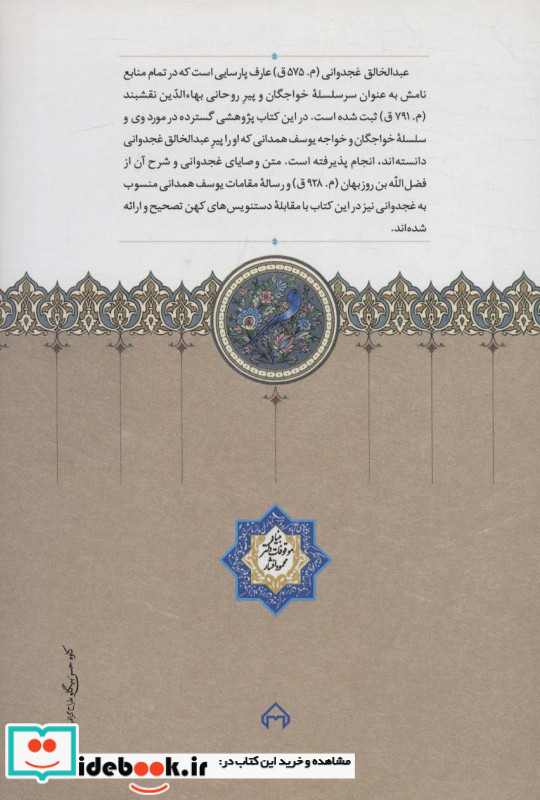 عبدالخالق غجدوانی (م. ۵۷۵ ق) عارف پارسایی است که در تمام منابع
نامش به عنوان سرسلسلهٔ خواجگان و پیر روحانی بهاءالدّین نقشبند
(م. ۷۹۱ ق) ثبت شده است. در این کتاب پژوهشی گسترده در مورد وی و
سلسلهٔ خواجگان و خواجه یوسف همدانی که او را پیر عبدالخالق غجدوانی
دانسته‌اند، انجام پذیرفته است. متن وصایای غجدوانی و شرح آن از
فضل‌اللّه بن روزبهان (م. ۹۲۸ ق) و رسالهٔ مقامات یوسف همدانی منسوب
به غجدوانی نیز در این کتاب با مقابلهٔ دستنویس‌های کهن تصحیح و ارائه
شده‌اند.
بنیاد
موقوفات دکتر
محمود افشار
کاوه حسن بیگلو
مشاهده و خرید این کتاب در:
idebook.ir